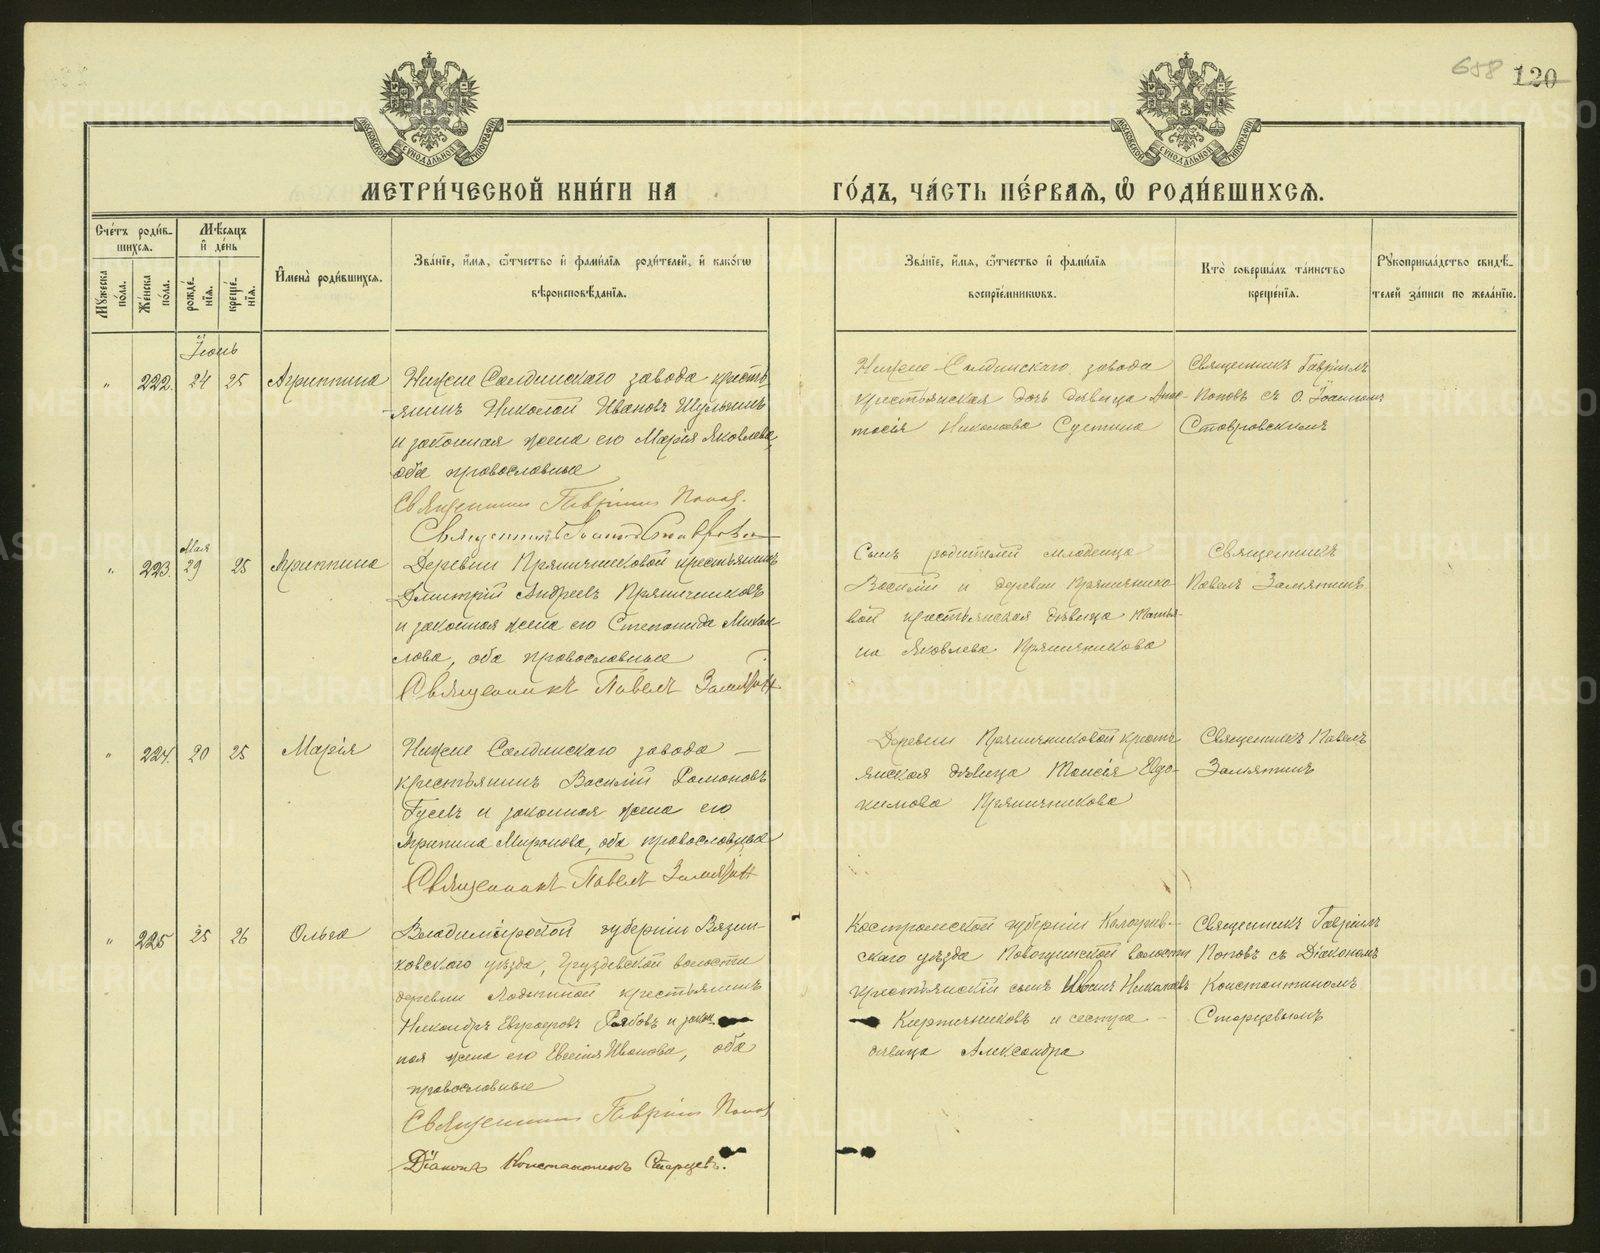 658 120
МОСКОВСКОЙ СѴНОДАЛЬНОЙ ТИПОГРАФИИ
МОСКОВСКОЙ СѴНОДАЛЬНОЙ ТИПОГРАФИИ
МЕТРИ́ЧЕСКОЙ КНИ́ГИ НА ГО́ДЪ, ЧА́СТЬ ПЕ́РВАЯ, Ѽ РОДИ́ВШИХСѦ.
Сче́тъ роди́в-
шихсѧ.
Мѣ́сѧцъ
и҆ де́нь
Мꙋ́жеска
по́ла.
Же́нска
по́ла.
рожде́-
нїѧ.
креще́-
нїѧ.
И҆мена̀ роди́вшихсѧ.
Зва́нїе, и҆́мѧ, ѻ҆́тчество и҆ фамі́лїѧ роди́телей, и҆ како́гѡ
вѣроисповѣ́данїѧ.
Зва́нїе, и҆́мѧ, ѻ҆́тчество и҆ фамі́лїѧ
воспрїе́мникѡвъ.
Кто̀ соверша́лъ та́инство
креще́нїѧ.
Рꙋкоприкла́дство свидѣ́-
телей за́писи по жела́нїю.
Іюнь
" 222. 24 25 Агриппина
Нижне Салдинскаго завода кресть-
янинъ Николай Ивановъ Шульгинъ
и законная жена его Марія Яковлева,
оба православные
Священникъ Гавріилъ Поповъ.
Священникъ Іоаннъ Ставровскій
Нижне-Салдинскаго завода
крестьянская дочь дѣвица Анас-
тасія Николаева Сустина
Священникъ Гавріилъ
Поповъ съ о. Іоанномъ
Ставровскимъ
Мая
" 223. 29 25 Агриппина
Деревни Пряничниковой крестьянинъ
Дмитрій Андреевъ Пряничниковъ
и законная жена его Степанида Михаи-
лова, оба православные
Священникъ Павелъ Замятинъ
Сынъ родителей младенца
Василій и деревни Пряничнико-
вой крестьянская дѣвица Татья-
на Яковлева Пряничникова
Священникъ
Павелъ Замятинъ
" 224. 20 25 Марія
Нижне Салдинскаго завода —
крестьянинъ Василій Романовъ
Гусевъ и законная жена его
Агрипина Миронова, оба православные
Священникъ Павелъ Замятинъ
Деревни Пряничниковой кресть-
янская дѣвица Таисія Евдо-
кимова Пряничникова
Священникъ Павелъ
Замятинъ
" 225 25 26 Ольга
Владимірской губерніи Вязни-
ковскаго уѣзда, Груздевской волости
деревни Лодыгиной крестьянинъ
Никандръ Евграфовъ Рябовъ и закон-
ная жена его Евгенія Иванова, оба
православные
Священникъ Гавріилъ Поповъ
Діаконъ Константинъ Старцевъ.
Костромской губерніи Кологрив-
скаго уѣзда Новогущской волости
крестьянскій сынъ Иванъ Николаевъ
Кирпичниковъ и сестра —
дѣвица Александра
Священникъ Гавріилъ
Поповъ съ Діакономъ
Константиномъ
Старцевымъ